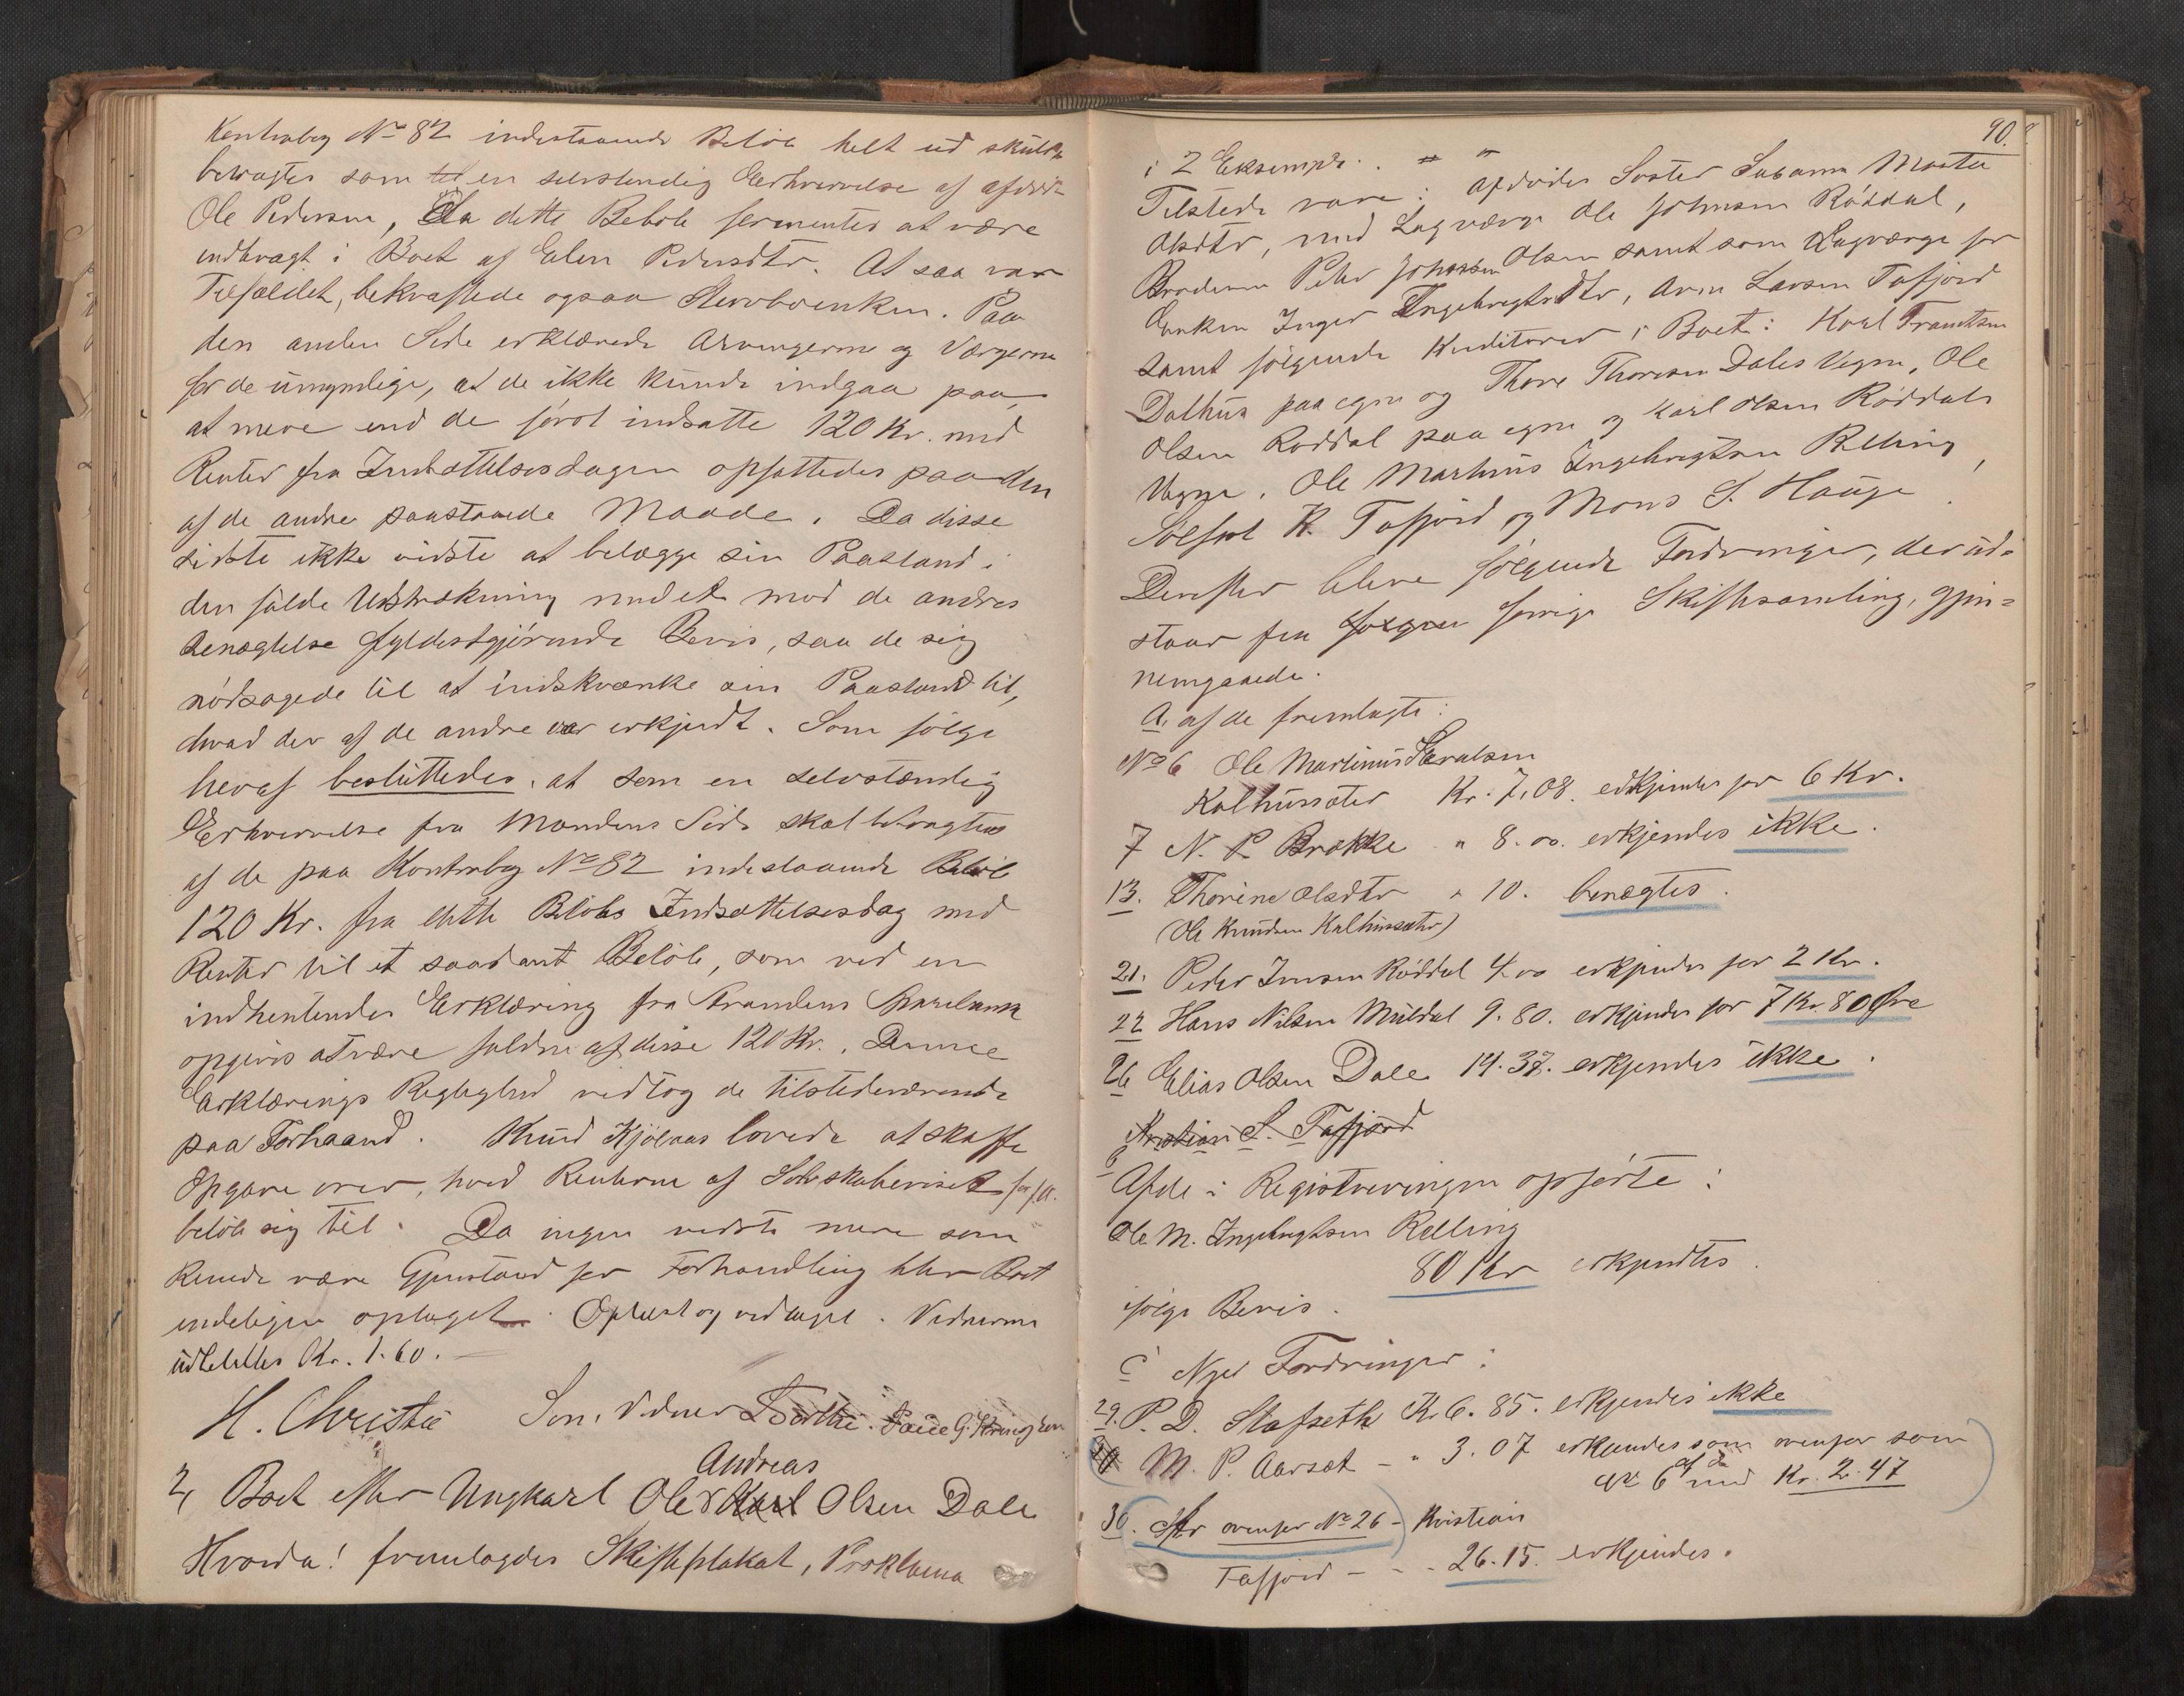 Kontrabog No 82 indestaaende Beløb helt ud skulde
betragtes som en selvstændig Erhvervelse af afdøde
Ole Pedersen, da dette Beløb formentes at være
indbragt i Boet af Elen Pedersdtr. At saa var
Tilfældet, bekræftede ogsaa Stervboenken. Paa
den anden Side erklærede Arvingerne og Værgerne
for de umyndige, at de ikke kunde indgaa paa,
at mere end de først indsatte 120 Kr. med
Renter fra Indsættelsesdagen opfattedes paa den
af de andre paastaaede Maade. Da disse
sidste ikke vidste at belægge sin Paastand i
den fulde Udstrækning med et mod de andres
Benægtelse fyldestgjørende Bevis, saa de sig
nødsagede til at indskrænke sin Paastand til,
hvad der af de andre var erkjendt. Som følge
heraf besluttedes, at som en selvstændig
Erhvervelse fra Mandens Side skal betragtes
af de paa Kontrabog No 82 indestaaende Beløb
120 Kr. fra dette Beløbs Indsættelsesdag med
Renter til et saadant Beløb, som ved en
indhentendes Erklæring fra Strandens Sparebank
opgives at være faldne af disse 120 Kr. Denne
Erklærings Rigtighed vedtog de tilstedeværende
paa Forhaand. Knud Kjølaas lovede at skaffe
Opgave over, hvad Renterne af
beløb sig til. Da ingen vidste mere som
kunde være Gjenstand for Forhandling blev Boet
endeligen optaget. Oplæst og vedtaget. Vidnerne
udbetaltes Kr. 1.60.
H. Christie Som Vidner
Andreas
2, Boet efter Ungkarl Ole Karl Olsen Dale
Hvorda! fremlagdes Skifteplakat, Proklama
90.
i 2 Eksempl.
Tilstede vare: afdødes Søster Susanna Marta
Olsdtr, med Lagværge Ole Johnsen Røddal,
Broderen Peter Johnsen Olsen samt som Lagværge for
Enken Inger Ingebregtsdtr, Arne Larsen Tafjord
samt følgende Kreditorer i Boet: Karl Frantsen
Dalhus paa egne og Thore Thoresen Dales Vegne, Ole
Olsen Røddal paa egne og Karl Olsen Røddals
Vegne. Ole Martinus Ingebregtsen Relling,
K. Tafjord og Mons S. Hauge.
Derefter bleve følgende Fordringer, der ud-
staar fra forrige Skiftesamling, gjen=
nemgaaede.
A. af de fremlagte:
No 6 Ole Martinus
Kalhussæter Kr. 7.08. erkjendes for 6 Kr.
7 N. P. Brække " 8.00. erkjendes ikke.
13. Thorine Olsdtr " 10. benægtes.
(Ole Knudsen Kalhussæter)
21. Peder Røddal 4.00 erkjendes for 2 Kr.
22 Hans Nilsen Muldal 9.80. erkjendes for 7 Kr. 80 Øre
26 Elias Olsen Dale 14.37. erkjendes ikke.
Kristian S. Tafjord
Af de i Registreringen opførte:
Ole M. Ingebregtsen Relling
80 Kr erkjendtes
ifølge Bevis.
C Nye Fordringer:
29. P. D. Stafseth Kr 6.85. erkjendes ikke
30 M. P. Aarsæt - " 3.07 erkjendes som ovenfor som
af de
No 6 med Kr. 2.47
30. ovenfor No 26 - Kristian
Tafjord - - - 26.15. erkjendes.